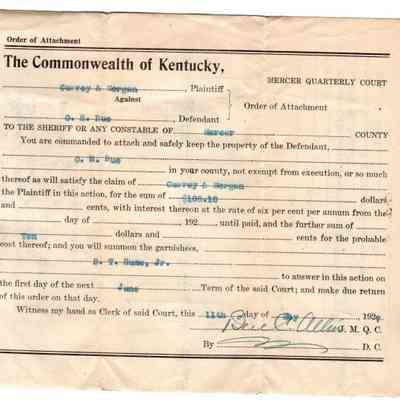 Order of Attachment
The Commonwealth of Kentucky,
MERCER QUARTERLY COURT
Curry & Morgan, Plaintiff
Against
Order of Attachment
Defendant
TO THE SHERIFF OR ANY CONSTABLE OF Mercer COUNTY
You are commanded to attach and safely keep the property of the Defendant,
in your county, not exempt from execution, or so much
thereof as will satisfy the claim of Curry & Morgan
the Plaintiff in this action, for the sum of $108.10 dollars
and cents, with interest thereon at the rate of six per cent per annum from the
day of 192 until paid, and the further sum of
Ten dollars and cents for the probable
cost thereof; and you will summon the garnishees,
Jr.
to answer in this action on
the first day of the next June Term of the said Court; and make due return
of this order on that day.
Witness my hand as Clerk of said Court, this 11th day of May, 192
J. M. Q. C.
By D. C.